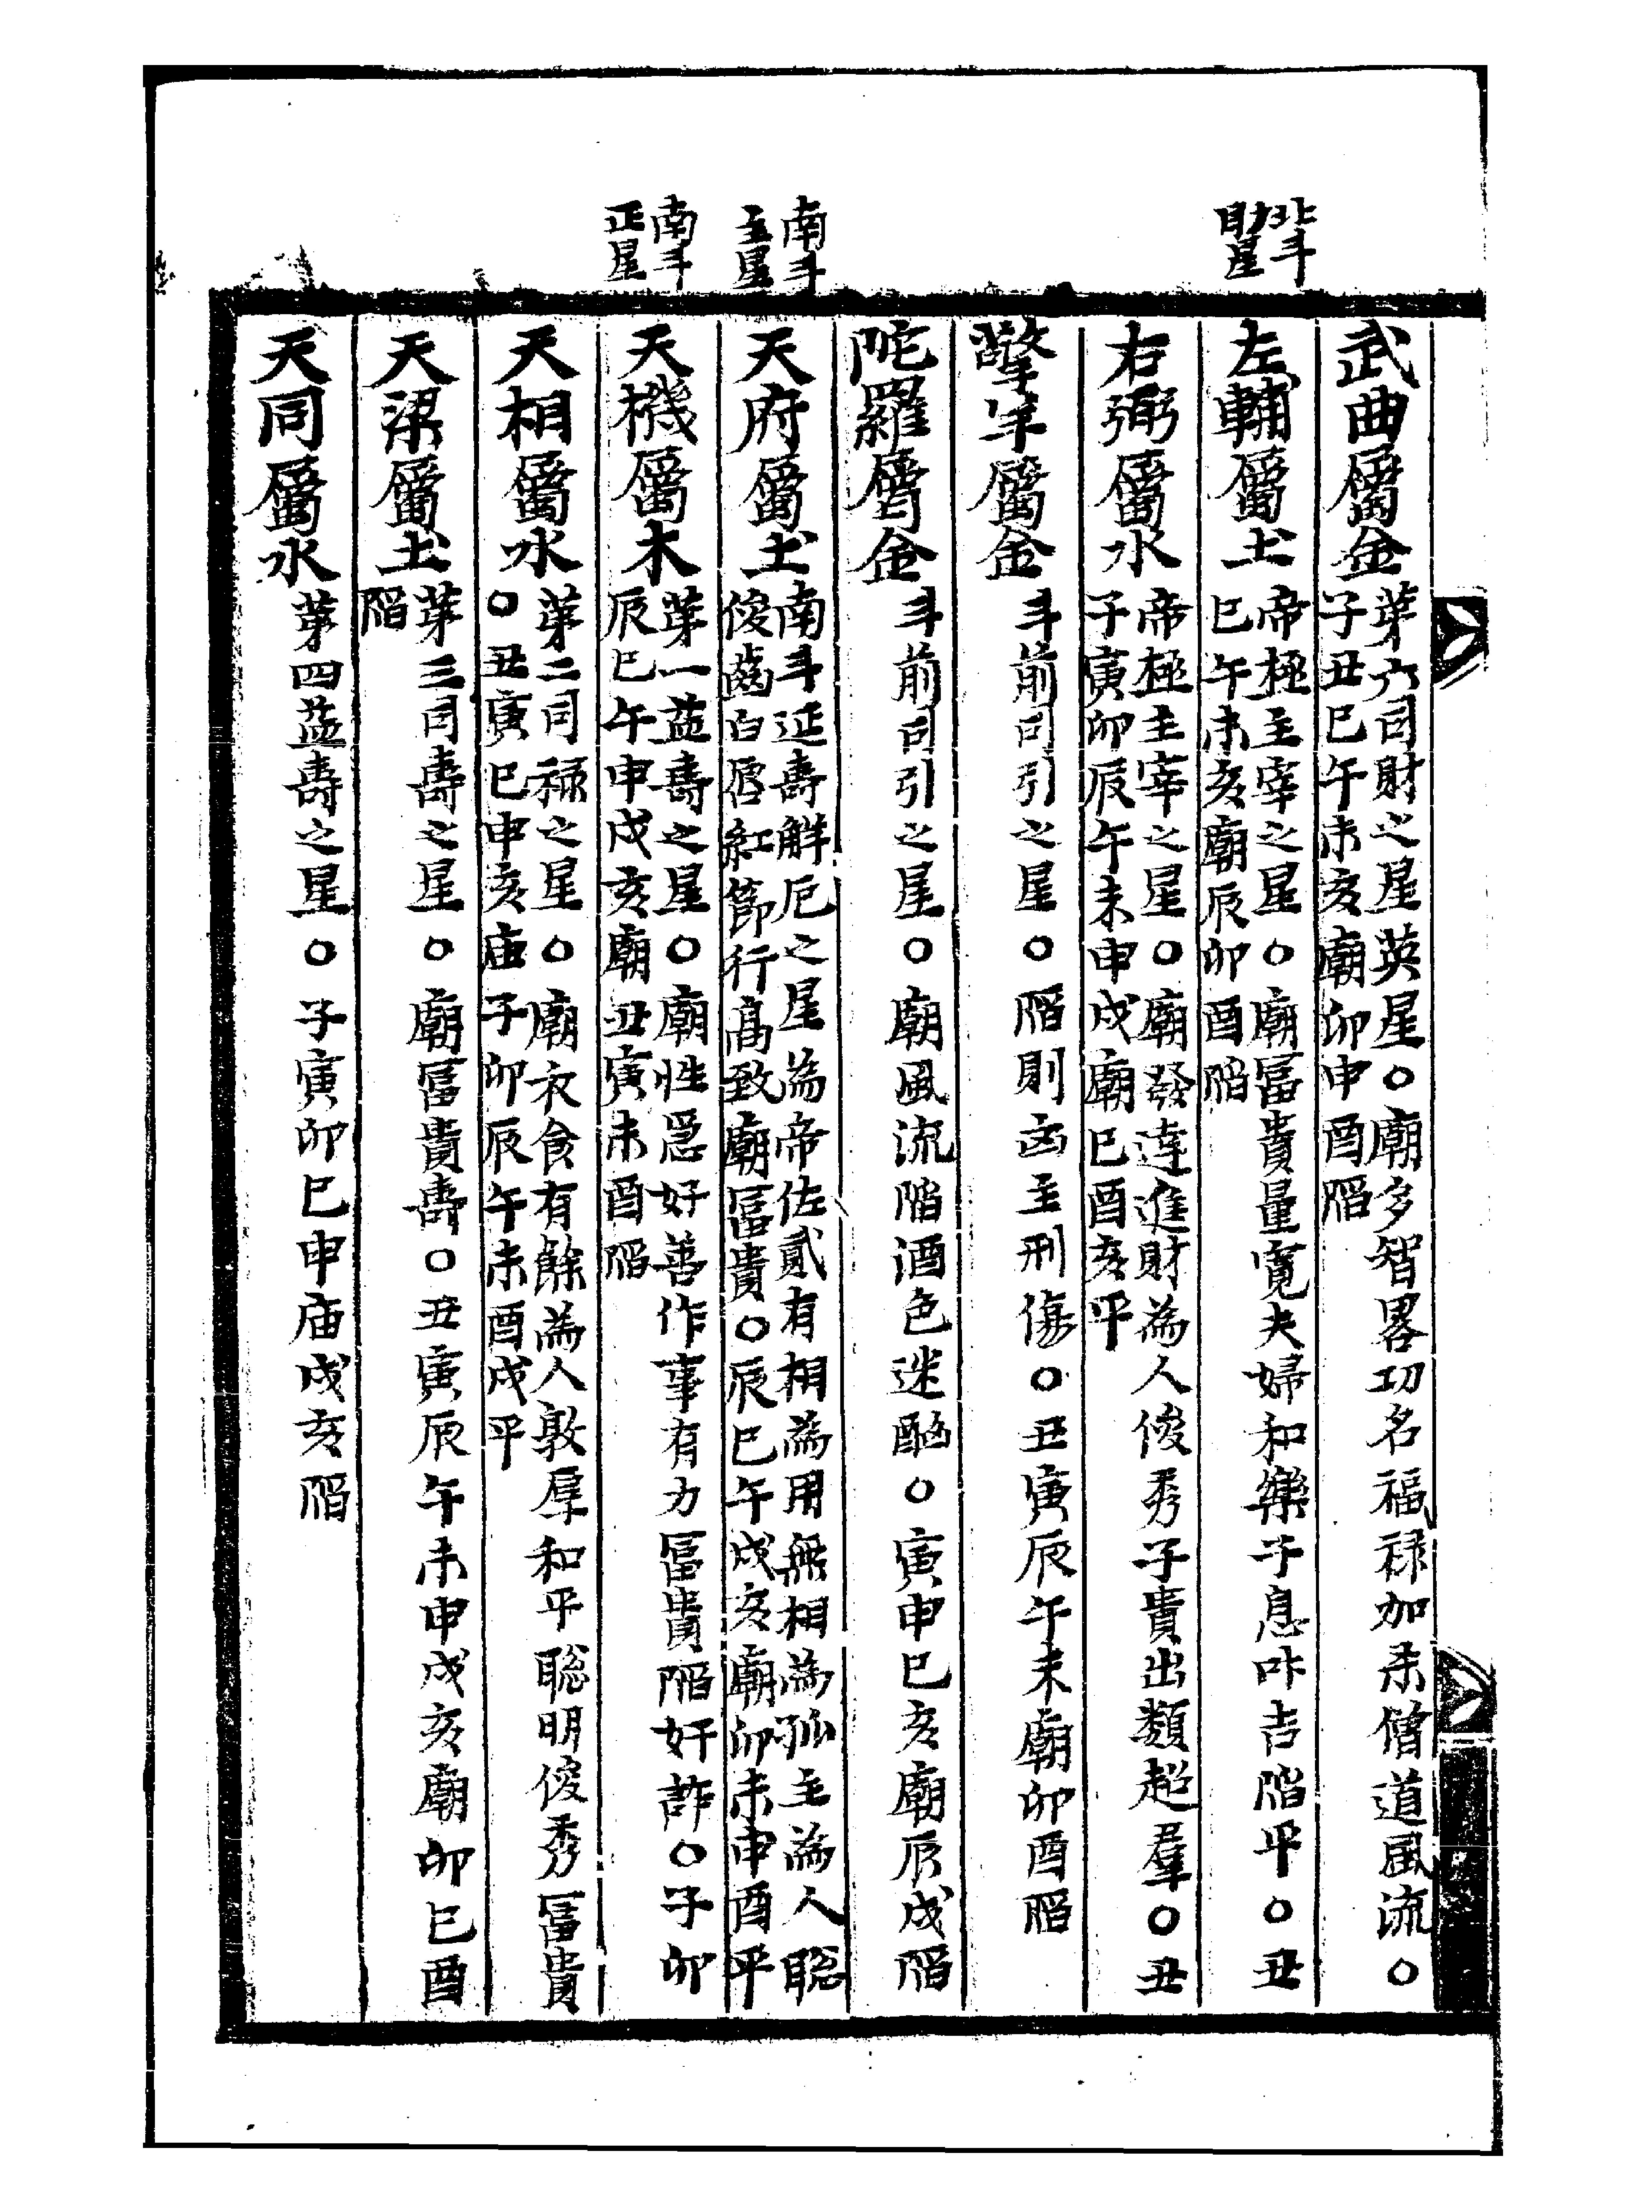 北斗
財星
武曲屬金
第六司財之星英星○廟多智畧功名福禄加未僧道風流○
子丑巳午未亥廟卯申酉陷
左輔屬土
帝極主宰之星○廟富貴量寬夫婦和樂子息叶吉陷平○丑
巳午未亥廟辰卯酉陷
右弼屬水
帝極主宰之星○廟發達進財為人俊秀子貴出類超羣○丑
子寅卯辰午未申戌廟巳酉亥平
擎羊屬金
斗前司引之星○陷則凶主刑傷○丑寅辰午未廟卯酉陷
陀羅屬金
斗前司引之星○廟風流陷酒色迷酩○寅申巳亥廟辰戌陷
南斗
主星
天府屬土
南斗延壽解厄之星為帝佐貳有相為用無相為孤主為人聡
俊齒白唇紅節行高致廟富貴○辰巳午戌亥廟卯未申酉平
南斗
正星
天機屬木
第一益壽之星○廟性急好善作事有力富貴陷奸詐○子卯
辰巳午申戌亥廟丑寅未酉陷
天相屬水
第二司禄之星○廟衣食有餘為人敦厚和平聡明俊秀富貴
○丑寅巳申亥庙子卯辰午未酉戌平
天梁屬土
第三司壽之星○廟富貴壽○丑寅辰午未申戌亥廟卯巳酉
陷
天同屬水
第四益壽之星○子寅卯巳申庙戌亥陷